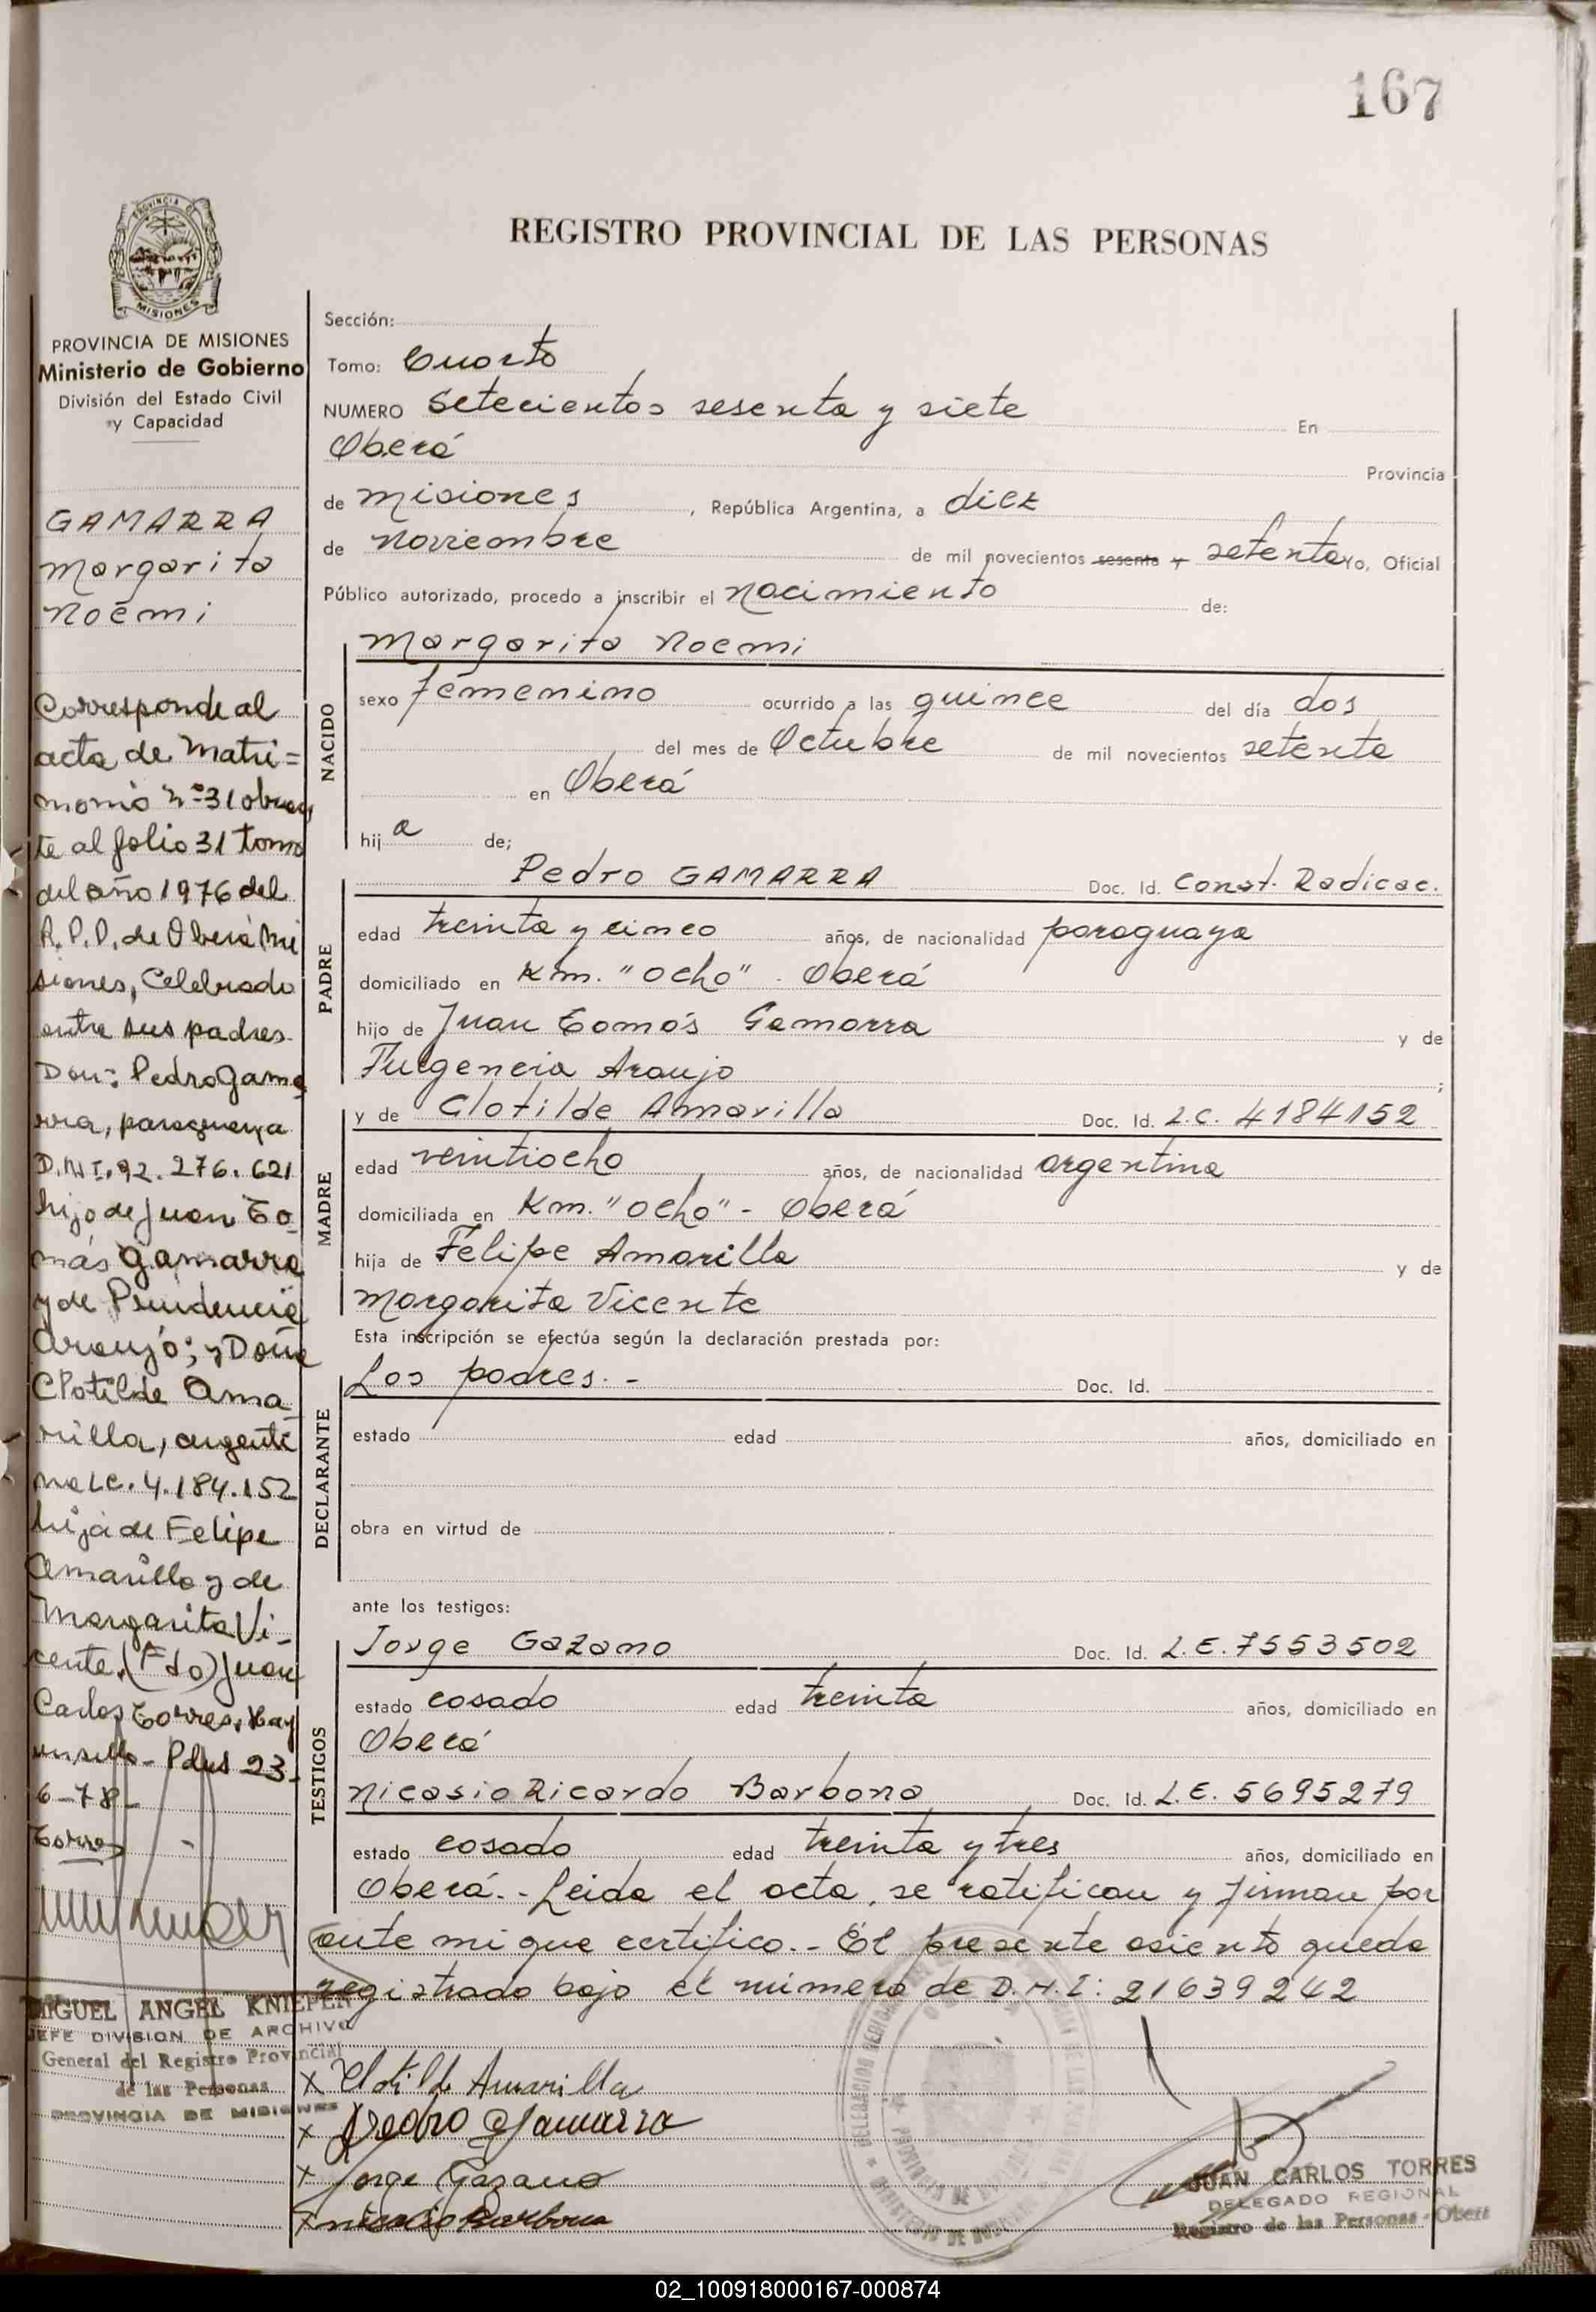 167
PROVINCIA DE
MISIONES
PROVINCIA DE MISIONES
Ministerio de Gobierno
División del Estado Civil
y Capacidad
GAMARRA
Margarita
Noemi
Corresponde al
acta de Matri=
monio nº 31 obran
te al folio 31 tomo
del año 1976 del
R.P.P. de Oberá Mi
siones, Celebrado
entre sus padres
Don: Pedro Gama
rra, paraguaya
D.N.I. 92.276.621
hijo de Juan To
más Gamarra
y de Prudencia
Araujo; y Doña
Clotilde Ama
rilla, argenti
na L.C. 4.184.152
hija de Felipe
Amarilla y de
Margarita Vi-
cente. (Fdo) Juan
Carlos Torres. Hay
un sello - Pdas 23-
6-78-
Torres
MIGUEL ANGEL KNIEPER
JEFE DIVISION DE ARCHIVO
General del Registro Provincial
de las Personas
PROVINCIA DE MISIONES
REGISTRO PROVINCIAL DE LAS PERSONAS
Sección:
Tomo: Cuarto
NUMERO Setecientos sesenta y siete En
Oberá Provincia
de Misiones, República Argentina, a diez
de Noviembre de mil novecientos sesenta y setenta Yo, Oficial
Público autorizado, procedo a inscribir el Nacimiento de:
NACIDO
Margarita Noemi
sexo femenino ocurrido a las quince del día dos
del mes de Octubre de mil novecientos setenta
en Oberá
hij a de;
PADRE
Pedro GAMARRA Doc. Id. Const. Radicac.
edad treinta y cinco años, de nacionalidad paraguaya
domiciliado en Km. "Ocho" - Oberá
hijo de Juan Tomás Gamarra y de
Fulgencia Araujo ;
MADRE
y de Clotilde Amarilla Doc. Id. L.C. 4184152
edad veintiocho años, de nacionalidad argentina
domiciliada en Km. "Ocho" - Oberá
hija de Felipe Amarilla y de
Margarita Vicente
Esta inscripción se efectúa según la declaración prestada por:
DECLARANTE
Los padres. - Doc. Id.
estado edad años, domiciliado en
obra en virtud de
ante los testigos:
TESTIGOS
Jorge Gazano Doc. Id. L.E. 7553502
estado casado edad treinta años, domiciliado en
Oberá
Nicasio Ricardo Barbona Doc. Id. L.E. 5695279
estado casado edad treinta y tres años, domiciliado en
Oberá.- Leida el acta, se ratifican y firman por
ante mi que certifico.- El presente asiento queda
registrado bajo el número de D.N.I: 21639242
x Clotilde Amarilla
x Pedro Gamarra
x Jorge Gazano
x Nicasio Barbona
JUAN CARLOS TORRES
DELEGADO REGIONAL
Registro de las Personas - Oberá
02_100918000167-000874